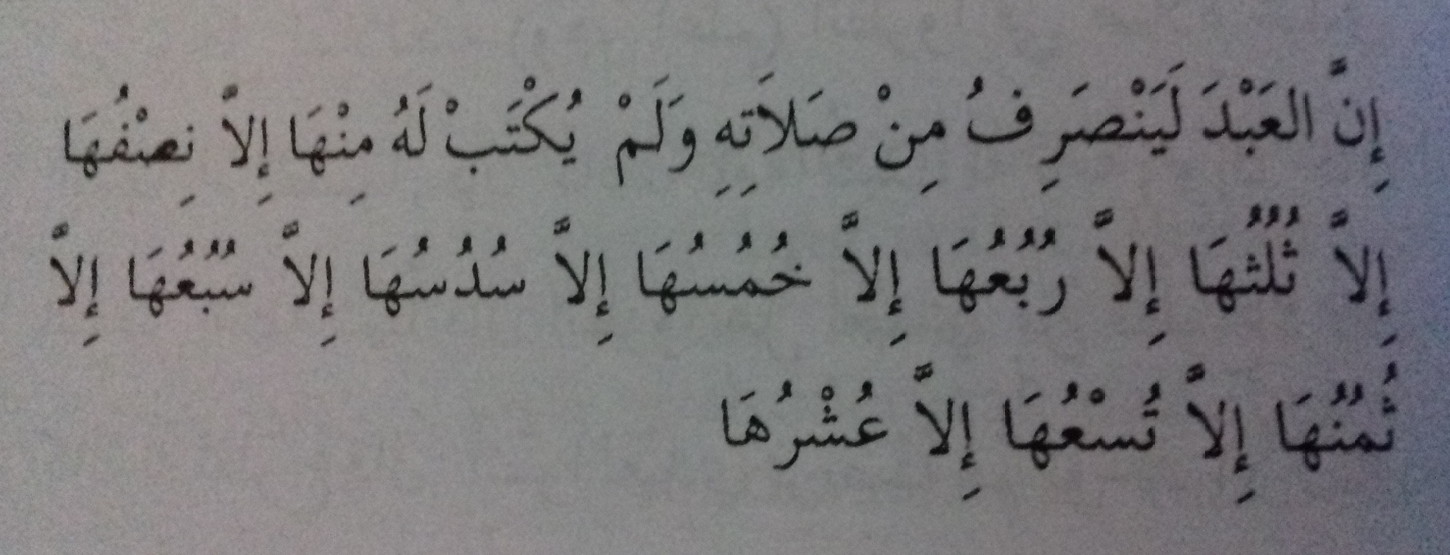 إِنَّ العَبْدَ لَيَنْصَرِفُ مِنْ صَلَاَتِهِ وَلَمْ يُكْتَبْ لَهُ مِنْهَا إِلاَّ نِصْفُهَا
إِلاَّ ثُلُثُهَا إِلاَّ رُبُعُهَا إِلاَّ خُمُسُهَا إِلاَّ سُدُسُهَا إِلاَّ سُبُعُهَا إِلاَّ
ثُمُنُهَا إِلاَّ تُسْعُهَا إِلاَّ عُشْرُهَا